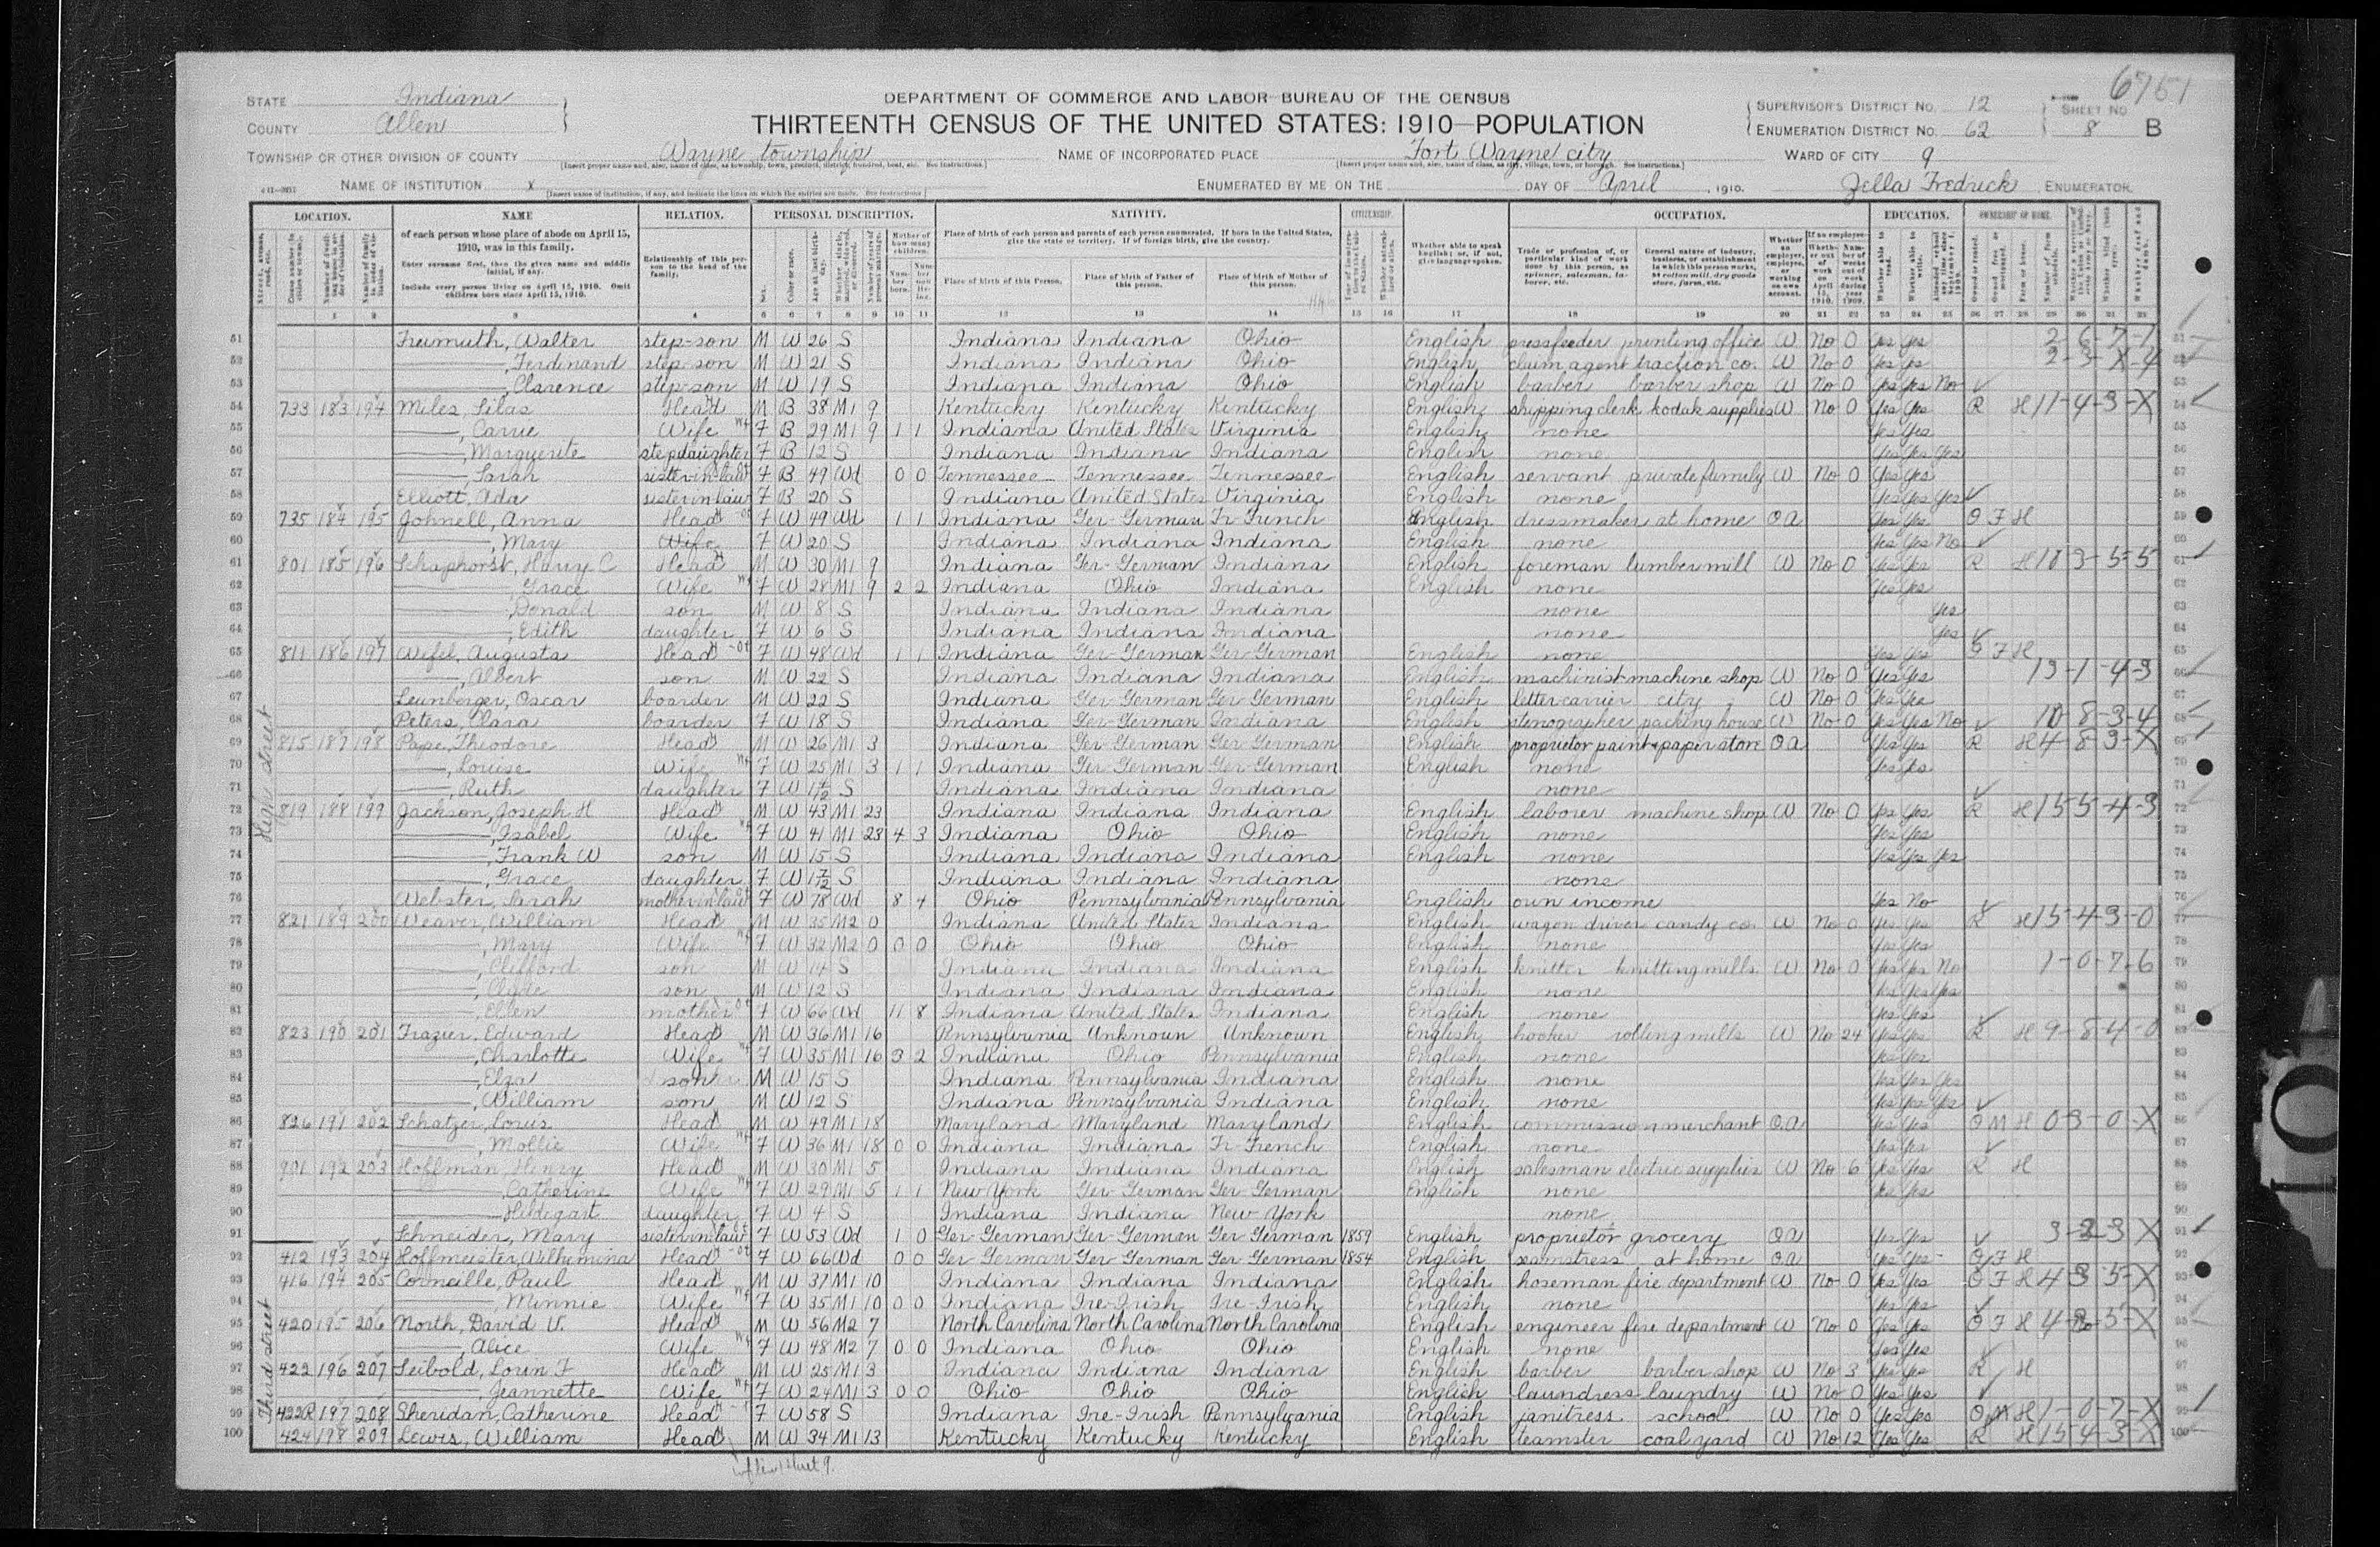 6751
STATE Indiana
COUNTY Allen
DEPARTMENT OF COMMERCE AND LABOR—BUREAU OF THE CENSUS
THIRTEENTH CENSUS OF THE UNITED STATES: 1910—POPULATION
SUPERVISOR'S DISTRICT NO. 12
ENUMERATION DISTRICT NO. 62
SHEET NO. 8 B
TOWNSHIP OR OTHER DIVISION OF COUNTY Wayne township
NAME OF INCORPORATED PLACE Fort Wayne city
WARD OF CITY 9
NAME OF INSTITUTION X
ENUMERATED BY ME ON THE DAY OF April, 1910. Zella Fredrick ENUMERATOR.
LOCATION. NAME RELATION. PERSONAL DESCRIPTION. NATIVITY. CITIZENSHIP. OCCUPATION. EDUCATION. OWNERSHIP OF HOME.
of each person whose place of abode on April 15, 1910, was in this family.
Enter surname first, then the given name and middle initial, if any.
Include every person living on April 15, 1910. Omit children born since April 15, 1910.
Relationship of this person to the head of the family.
Place of birth of each person and parents of each person enumerated. If born in the United States, give the state or territory. If of foreign birth, give the country.
Place of birth of this Person. Place of birth of Father of this person. Place of birth of Mother of this person.
Whether able to speak English; or, if not, give language spoken.
51 Freimuth, Walter step-son M W 26 S Indiana Indiana Ohio English pressfeeder printing office W No 0 Yes Yes 2-6-7-1
52 ——, Ferdinand step-son M W 21 S Indiana Indiana Ohio English claim agent traction co. W No 0 Yes Yes 2-3-X-4
53 ——, Clarence step-son M W 19 S Indiana Indiana Ohio English barber barber shop W No 0 Yes Yes No
54 733 183 194 Miles, Silas Head M B 38 M1 9 Kentucky Kentucky Kentucky English shipping clerk kodak supplies W No 0 Yes Yes R H 11-4-3-X
55 ——, Carrie Wife F B 29 M1 9 1 1 Indiana United States Virginia English none Yes Yes
56 ——, Marguerite stepdaughter F B 12 S Indiana Indiana Indiana English none Yes Yes Yes
57 ——, Sarah sister in law F B 49 Wd 0 0 Tennessee Tennessee Tennessee English servant private family W No 0 Yes Yes
58 Elliott, Ada sister in law F B 20 S Indiana United States Virginia English none Yes Yes Yes
59 735 184 195 Johnell, Anna Head F W 49 Wd 1 1 Indiana Ger-German Fr-French English dressmaker at home O a Yes Yes O F H
60 ——, Mary Wife F W 20 S Indiana Indiana Indiana English none Yes Yes No
61 801 185 196 Schaphorst, Harry C Head M W 30 M1 9 Indiana Ger-German Indiana English foreman lumber mill W No 0 Yes Yes R H
62 ——, Grace Wife F W 28 M1 9 2 2 Indiana Ohio Indiana English none Yes Yes
63 ——, Donald son M W 8 S Indiana Indiana Indiana none Yes
64 ——, Edith daughter F W 6 S Indiana Indiana Indiana none Yes
65 811 186 197 Wefel, Augusta Head F W 48 Wd 1 1 Indiana Ger-German Ger-German English none Yes Yes O F H
66 ——, Albert son M W 22 S Indiana Indiana Indiana English machinist machine shop W No 0 Yes Yes 13-1-4-3
67 Leinberger, Oscar boarder M W 22 S Indiana Ger-German Ger-German English letter carrier city W No 0 Yes Yes
68 Peters, Clara boarder F W 18 S Indiana Ger-German Indiana English stenographer packing house W No 0 Yes Yes No 10-8-3-4
69 815 187 198 Pape, Theodore Head M W 26 M1 3 Indiana Ger-German Ger-German English proprietor paint & paper store O a Yes Yes R H 4-8-3-X
70 ——, Louise Wife F W 25 M1 3 1 1 Indiana Ger-German Ger-German English none Yes Yes
71 ——, Ruth daughter F W S Indiana Indiana Indiana none
72 819 188 199 Jackson, Joseph H Head M W 43 M1 23 Indiana Indiana Indiana English laborer machine shop W No 0 Yes Yes R H 15-5-4-3
73 ——, Isabel Wife F W 41 M1 23 4 3 Indiana Ohio Ohio English none Yes Yes
74 ——, Frank W son M W 15 S Indiana Indiana Indiana English none Yes Yes Yes
75 ——, Grace daughter F W 1 7/12 S Indiana Indiana Indiana none
76 Webster, Sarah mother in law F W 78 Wd 8 4 Ohio Pennsylvania Pennsylvania English own income Yes No
77 821 189 200 Weaver, William Head M W 35 M2 0 Indiana United States Indiana English wagon driver candy co. W No 0 Yes Yes R H 15-4-3-0
78 ——, Mary Wife F W 32 M2 0 0 0 Ohio Ohio Ohio English none Yes Yes
79 ——, Clifford son M W 14 S Indiana Indiana Indiana English knitter knitting mills W No 0 Yes Yes No 1-0-7-6
80 ——, Clyde son M W 12 S Indiana Indiana Indiana English none Yes Yes Yes
81 ——, Ellen mother F W 66 Wd 11 8 Indiana United States Indiana English none Yes Yes
82 823 190 201 Frazier, Edward Head M W 36 M1 16 Pennsylvania Unknown Unknown English hooker rolling mills W No 24 Yes Yes R H 9-8-4-0
83 ——, Charlotte Wife F W 35 M1 16 3 2 Indiana Ohio Pennsylvania English none Yes Yes
84 ——, Elza son M W 15 S Indiana Pennsylvania Indiana English none Yes Yes Yes
85 ——, William son M W 12 S Indiana Pennsylvania Indiana English none Yes Yes Yes
86 826 191 202 Schatzer, Louis Head M W 49 M1 18 Maryland Maryland Maryland English commission merchant O.a Yes Yes O M H 0 3-0-X
87 ——, Mollie Wife F W 36 M1 18 0 0 Indiana Indiana Fr-French English none Yes Yes
88 901 192 203 Hoffman, Henry Head M W 30 M1 5 Indiana Indiana Indiana English salesman electric supplies W No 6 Yes Yes R H
89 ——, Catherine Wife F W 29 M1 5 1 1 New York Ger-German Ger-German English none Yes Yes
90 ——, Hildegart daughter F W 4 S Indiana Indiana New York none
91 Schneider, Mary sister in law F W 53 Wd 1 0 Ger-German Ger-German Ger German 1859 English proprietor grocery O a Yes Yes 3-2-3 X
92 412 193 204 Hoffmeister, Wilhemina Head F W 66 Wd 0 0 Ger-German Ger-German Ger-German 1854 English seamstress at home O a Yes Yes O F H
93 416 194 205 Corneille, Paul Head M W 37 M1 10 Indiana Indiana Indiana English hoseman fire department W No 0 Yes Yes O F H 4 3-5-X
94 ——, Minnie Wife F W 35 M1 10 0 0 Indiana Ire-Irish Ire-Irish English none Yes Yes
95 420 195 206 North, David V. Head M W 56 M2 7 North Carolina North Carolina North Carolina English engineer fire department W No 0 Yes Yes O F H
96 ——, Alice Wife F W 48 M2 7 0 0 Indiana Ohio Ohio English none Yes Yes
97 422 196 207 Seibold, Lorin F Head M W 25 M1 3 Indiana Indiana Indiana English barber barber shop W No 3 Yes Yes R H
98 ——, Jeannette Wife F W 24 M1 3 0 0 Ohio Ohio Ohio English laundress laundry W No 0 Yes Yes
99 422R 197 208 Sheridan, Catherine Head F W 58 S Indiana Ire-Irish Pennsylvania English janitress school W No 0 Yes Yes O M H 1-0-7-X
100 424 198 209 Lewis, William Head M W 34 M1 13 Kentucky Kentucky Kentucky English teamster coal yard W No 12 Yes Yes R H 15-4-3-X
Third street